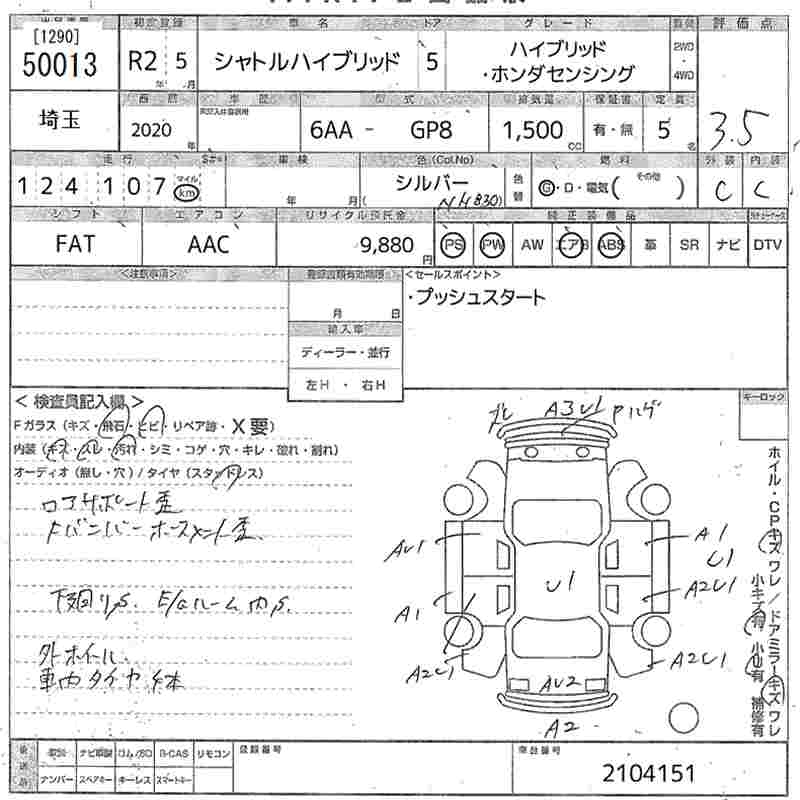 [1290]
50013
初度登録
R2 5
年 月
車名
シャトルハイブリッド
ドア
5
グレード
ハイブリッド
・ホンダセンシング
2WD
・
4WD
評価点
3.5
埼玉
2020
年
車歴
型式
6AA - GP8
排気量
1,500
CC
保証書
有・無
定員
5
名
走行
124107
マイル
km
車検
年 月
色(Col.No)
シルバー
NH830
色替
燃料
G・D・電気( その他 )
外装
C
内装
C
シフト
FAT
エアコン
AAC
リサイクル預託金
9,880
円
純正装備品
PS PW AW エアB ABS 革 SR ナビ DTV
<注意事項>
月 日
輸入車
ディーラー・並行
左H ・ 右H
<セールスポイント>
・プッシュスタート
<検査員記入欄>
Fガラス(キズ・飛石・ヒビ・リペア跡・X要)
内装(キズ・スレ・汚れ・シミ・コゲ・穴・キレ・破れ・割れ)
オーディオ(無し・穴)/タイヤ(スタッドレス)
コアサポート歪
Fバンパーホースメント歪
下廻りS. E/Gルーム内S.
外ホイール
車内タイヤ4本
キーロック
A3U1 Pハゲ
AU1
A1
A2U1
U1
A1
U1
A2U1
A2U1
AU2
A2
ホイール・CPキズワレ/ドアミラーキズワレ
小キズ有 小U有 補修有
後送品
ナビROM/SD B-CAS リモコン
ナンバー スペアキー キーレス スマートキー
登録番号
車台番号
2104151